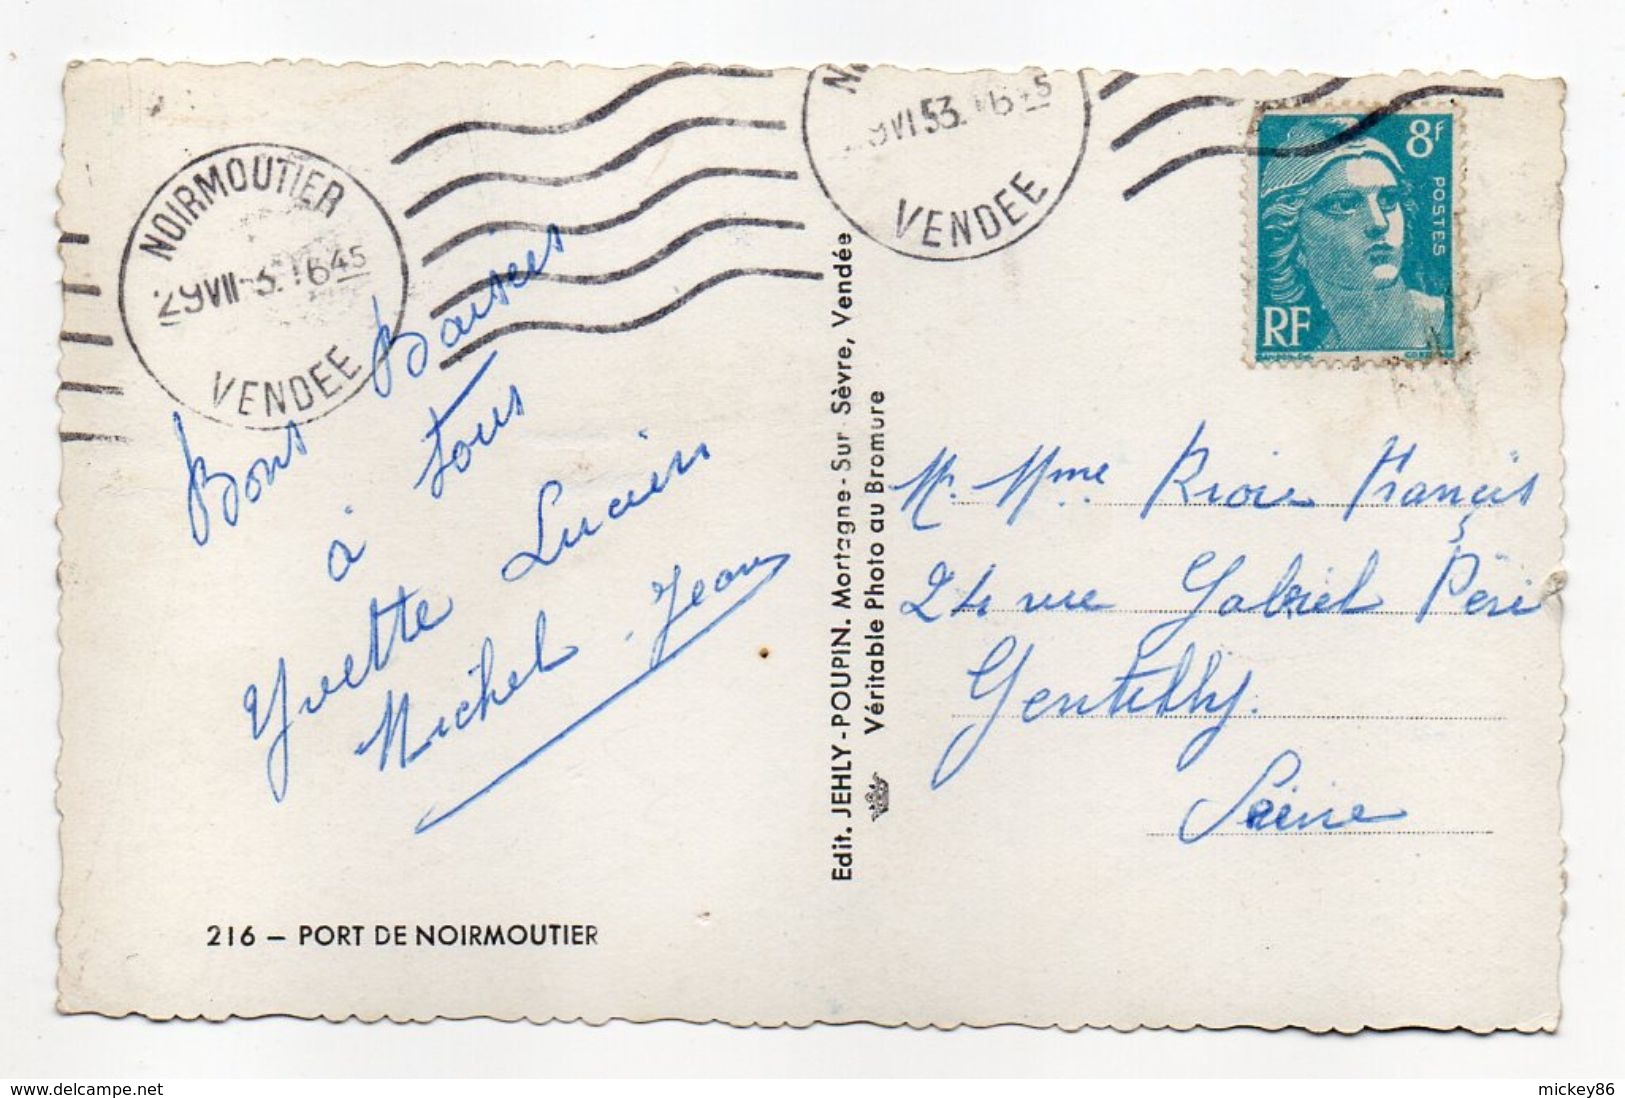 NOIRMOUTIER
VENDEE
VI 53
VENDEE
8f
POSTES
RF
Bons Baisers
à tous
Yvette Lucien
Michel. Jean
Edit. JEHLY-POUPIN. Mortagne-Sur Sèvre, Vendée
Véritable Photo au Bromure
Mr. Mme François
24 rue Gabriel Péri
Gentilly.
Seine
216 – PORT DE NOIRMOUTIER
www.delcampe.net
mickey86